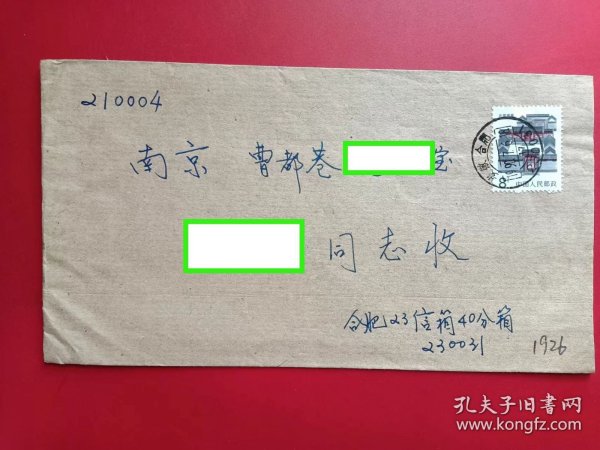 210004
南京 曹都巷 宝
同志收
合肥23信箱40分箱
230031
1926
合肥
8
中国人民邮政
孔夫子旧书网
www.kongfz.com